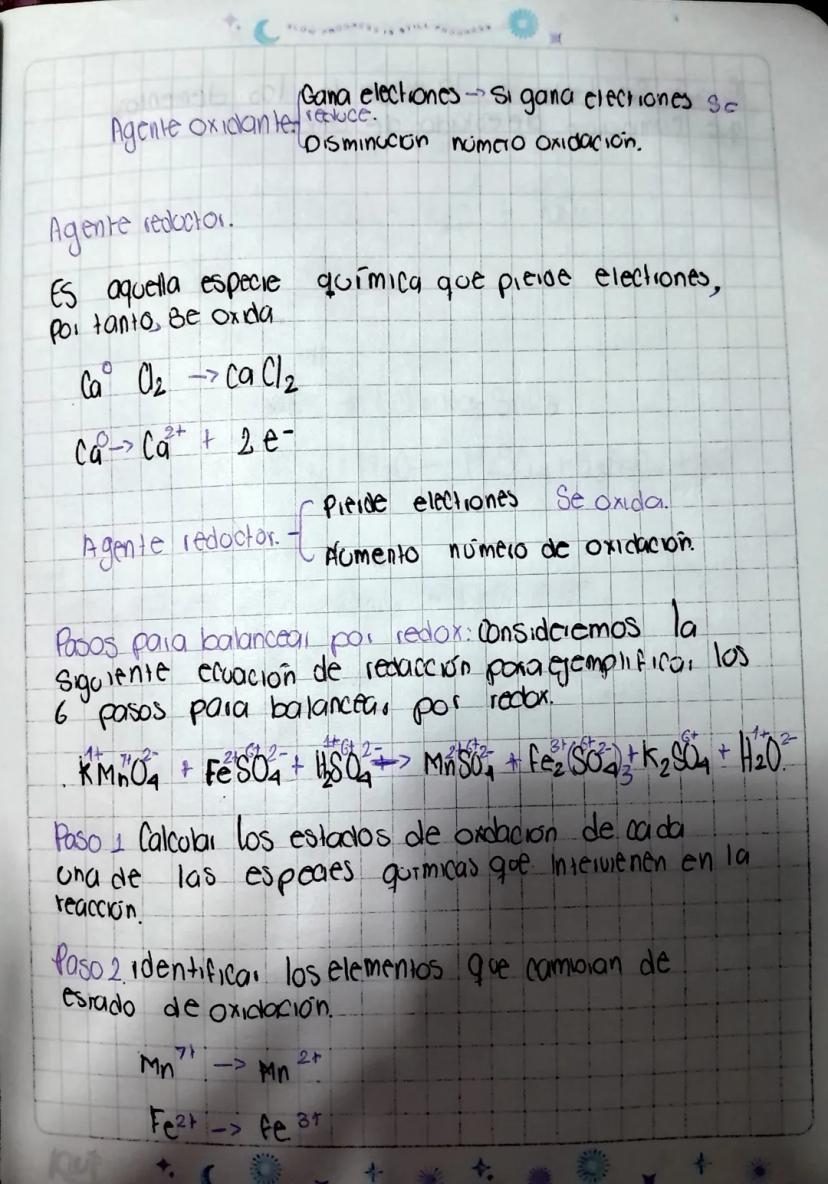 SLOW PROGRESS IS STILL PROGRESS
Gana electrones → si gana electrones se
Agente oxidante. reduce.
Disminución número oxidación.
Agente reductor.
Es aquella especie química que pierde electrones,
por tanto, se oxida
Ca⁰ Cl₂ → CaCl₂
Ca⁰ → Ca²⁺ + 2e⁻
Pierde electrones Se oxida.
Agente reductor.
Aumento número de oxidación.
Pasos para balancear por redox: Consideremos la
siguiente ecuación de redacción para ejemplificar los
6 pasos para balancear por redox.
K¹⁺Mn⁷⁺O₄²⁻ + Fe²⁺S⁶⁺O₄²⁻ + H₂¹⁺S⁶⁺O₄²⁻ → Mn²⁺S⁶⁺O₄²⁻ + Fe₂³⁺(S⁶⁺O₄²⁻)₃ + K₂S⁶⁺O₄ + H₂¹⁺O²⁻
Paso 1 Calcular los estados de oxidación de cada
una de las especies químicas que intervienen en la
reacción.
Paso 2. identificar los elementos que cambian de
estado de oxidación.
Mn⁷⁺ → Mn²⁺
Fe²⁺ → Fe³⁺